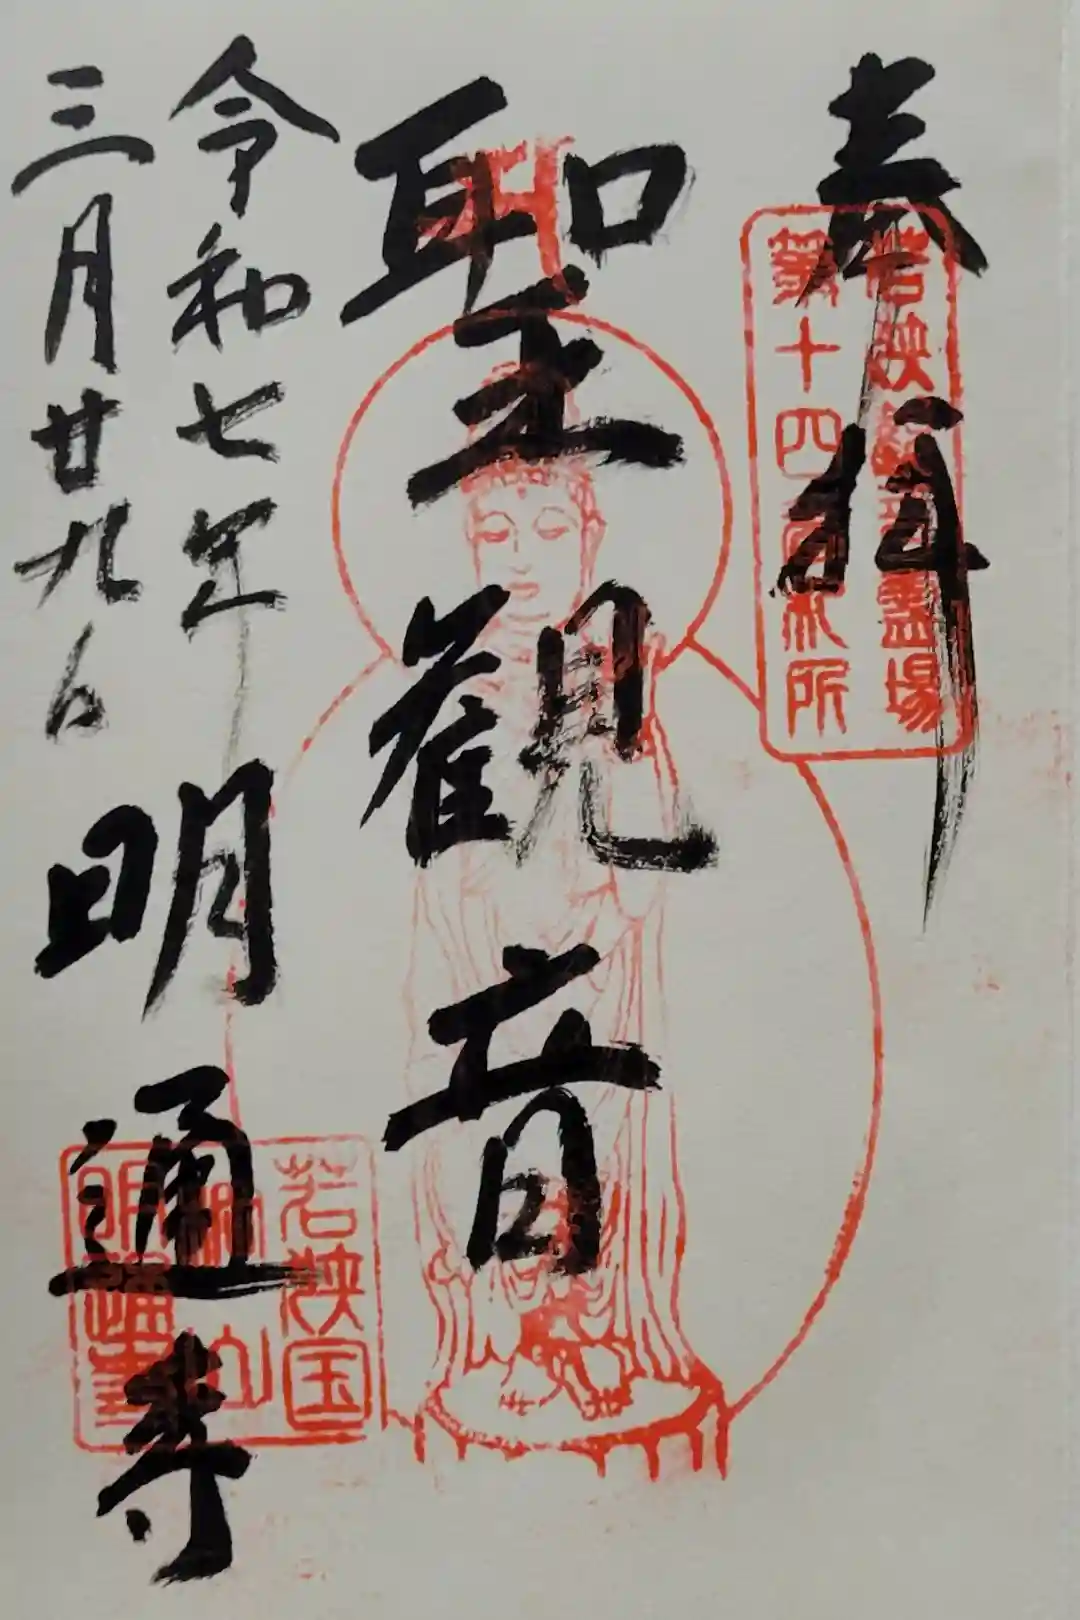 奉拝
若狭観音霊場
第十四番札所
聖観音
令和七年
三月廿九日
明通寺
若狭国
明通寺